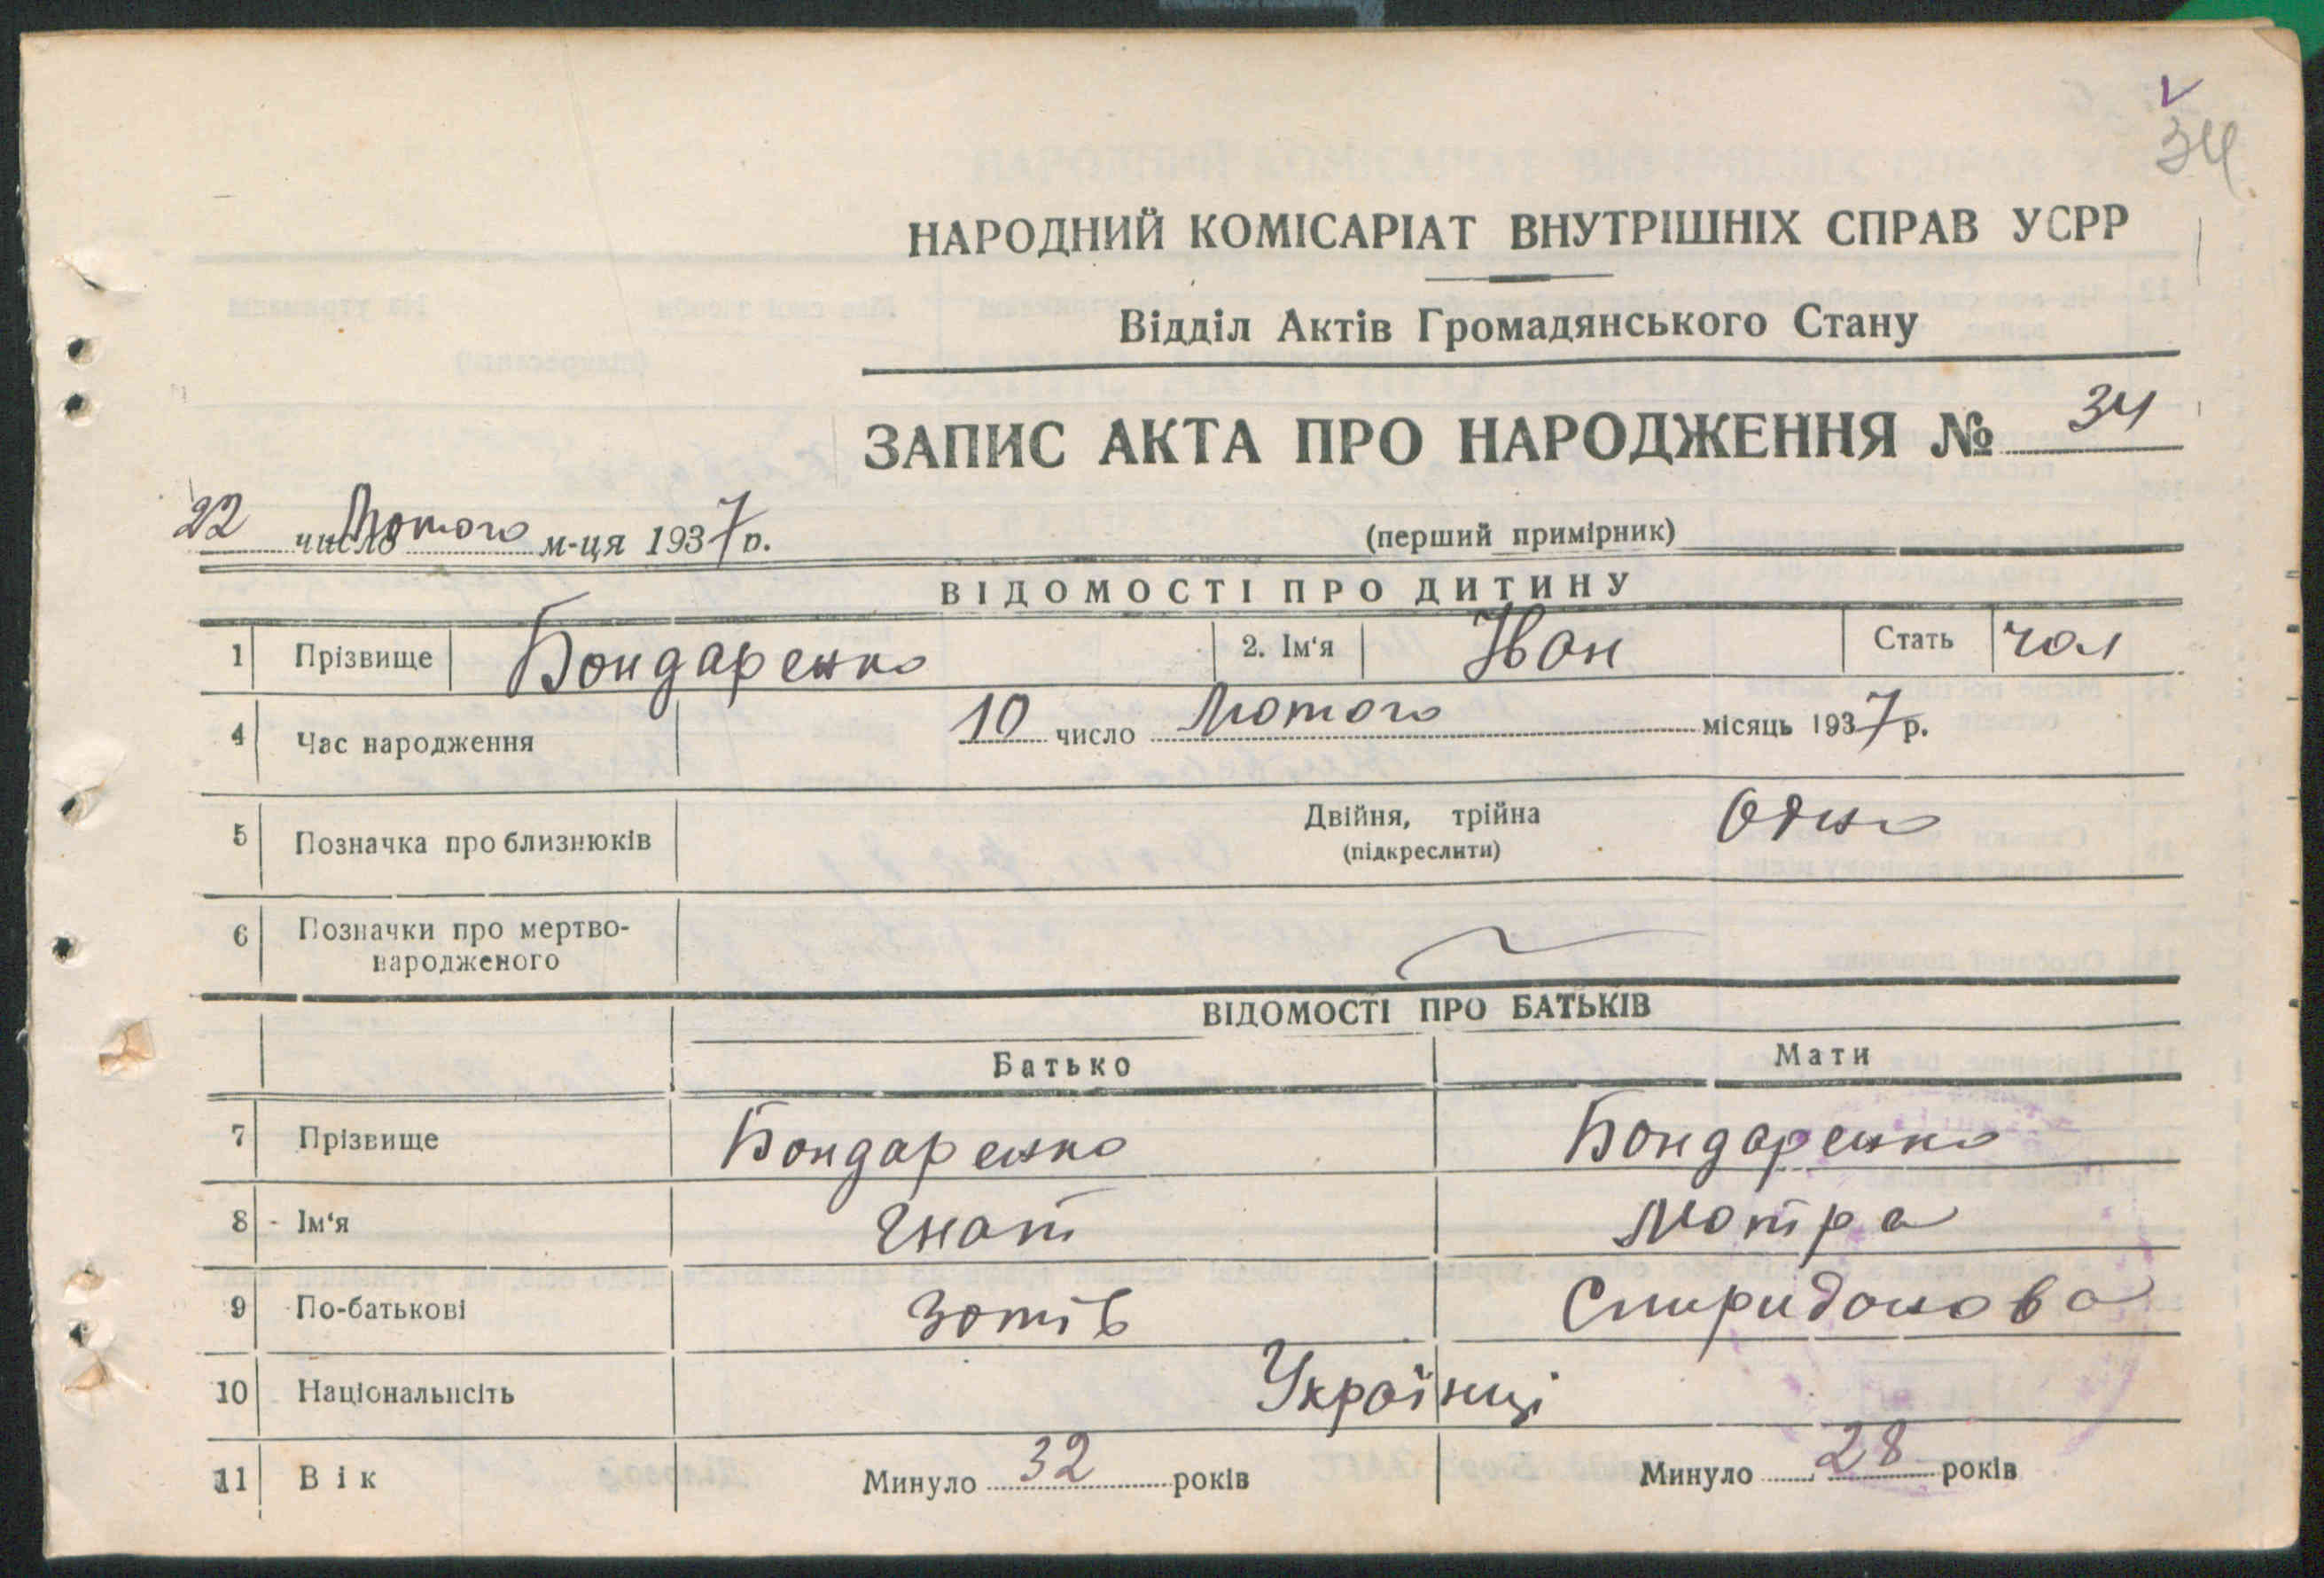 34
НАРОДНИЙ КОМІСАРІАТ ВНУТРІШНІХ СПРАВ УСРР
Відділ Актів Громадянського Стану
ЗАПИС АКТА ПРО НАРОДЖЕННЯ № 34
22 число Лютого м-ця 1937 р.
(перший примірник)
ВІДОМОСТІ ПРО ДИТИНУ
1 Прізвище Бондаренко 2. Ім‘я Іван Стать чол
4 Час народження 10 число Лютого місяць 1937 р.
5 Позначка про близнюків Двійня, трійна Одно
(підкреслити)
6 Позначки про мертво-
народженого
ВІДОМОСТІ ПРО БАТЬКІВ
Батько Мати
7 Прізвище Бондаренко Бондаренко
8 Ім‘я Гнат Мотра
9 По-батькові Зотів Спиридонова
10 Національнсіть Українці
11 Вік Минуло 32 років Минуло 28 років